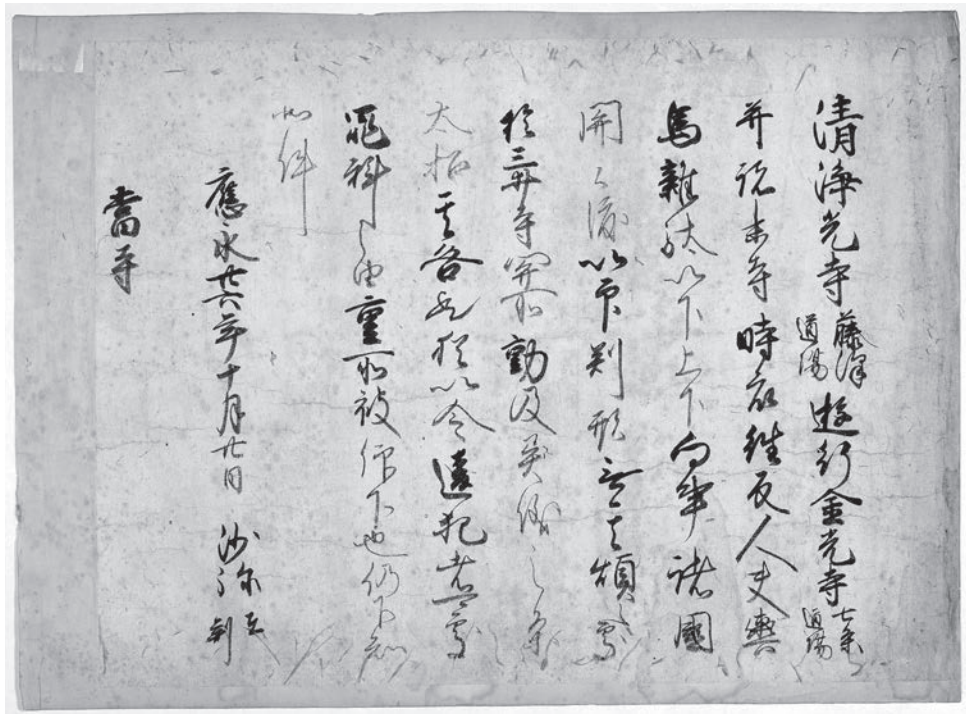 清淨光寺藤澤道場遊行金光寺七条道場
并諸末寺時衆往反人夫輿
馬雜駄以下上下向事諸國
關々渡以印判形無其煩處
於三井寺關所動及異儀之条
太招其咎歟猶以令違犯者可處
罪科之由重所被仰下也仍下知
如件
應永廿六年十月廿日 沙弥在判
當寺